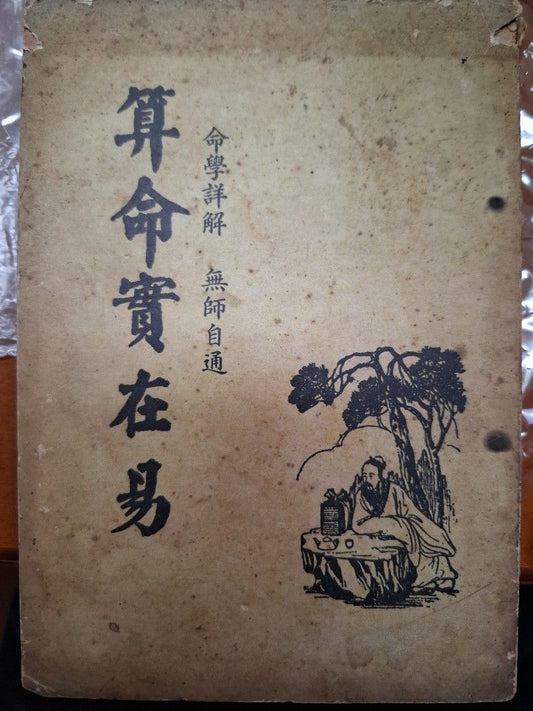 命學詳解 無師自通
算命實在易